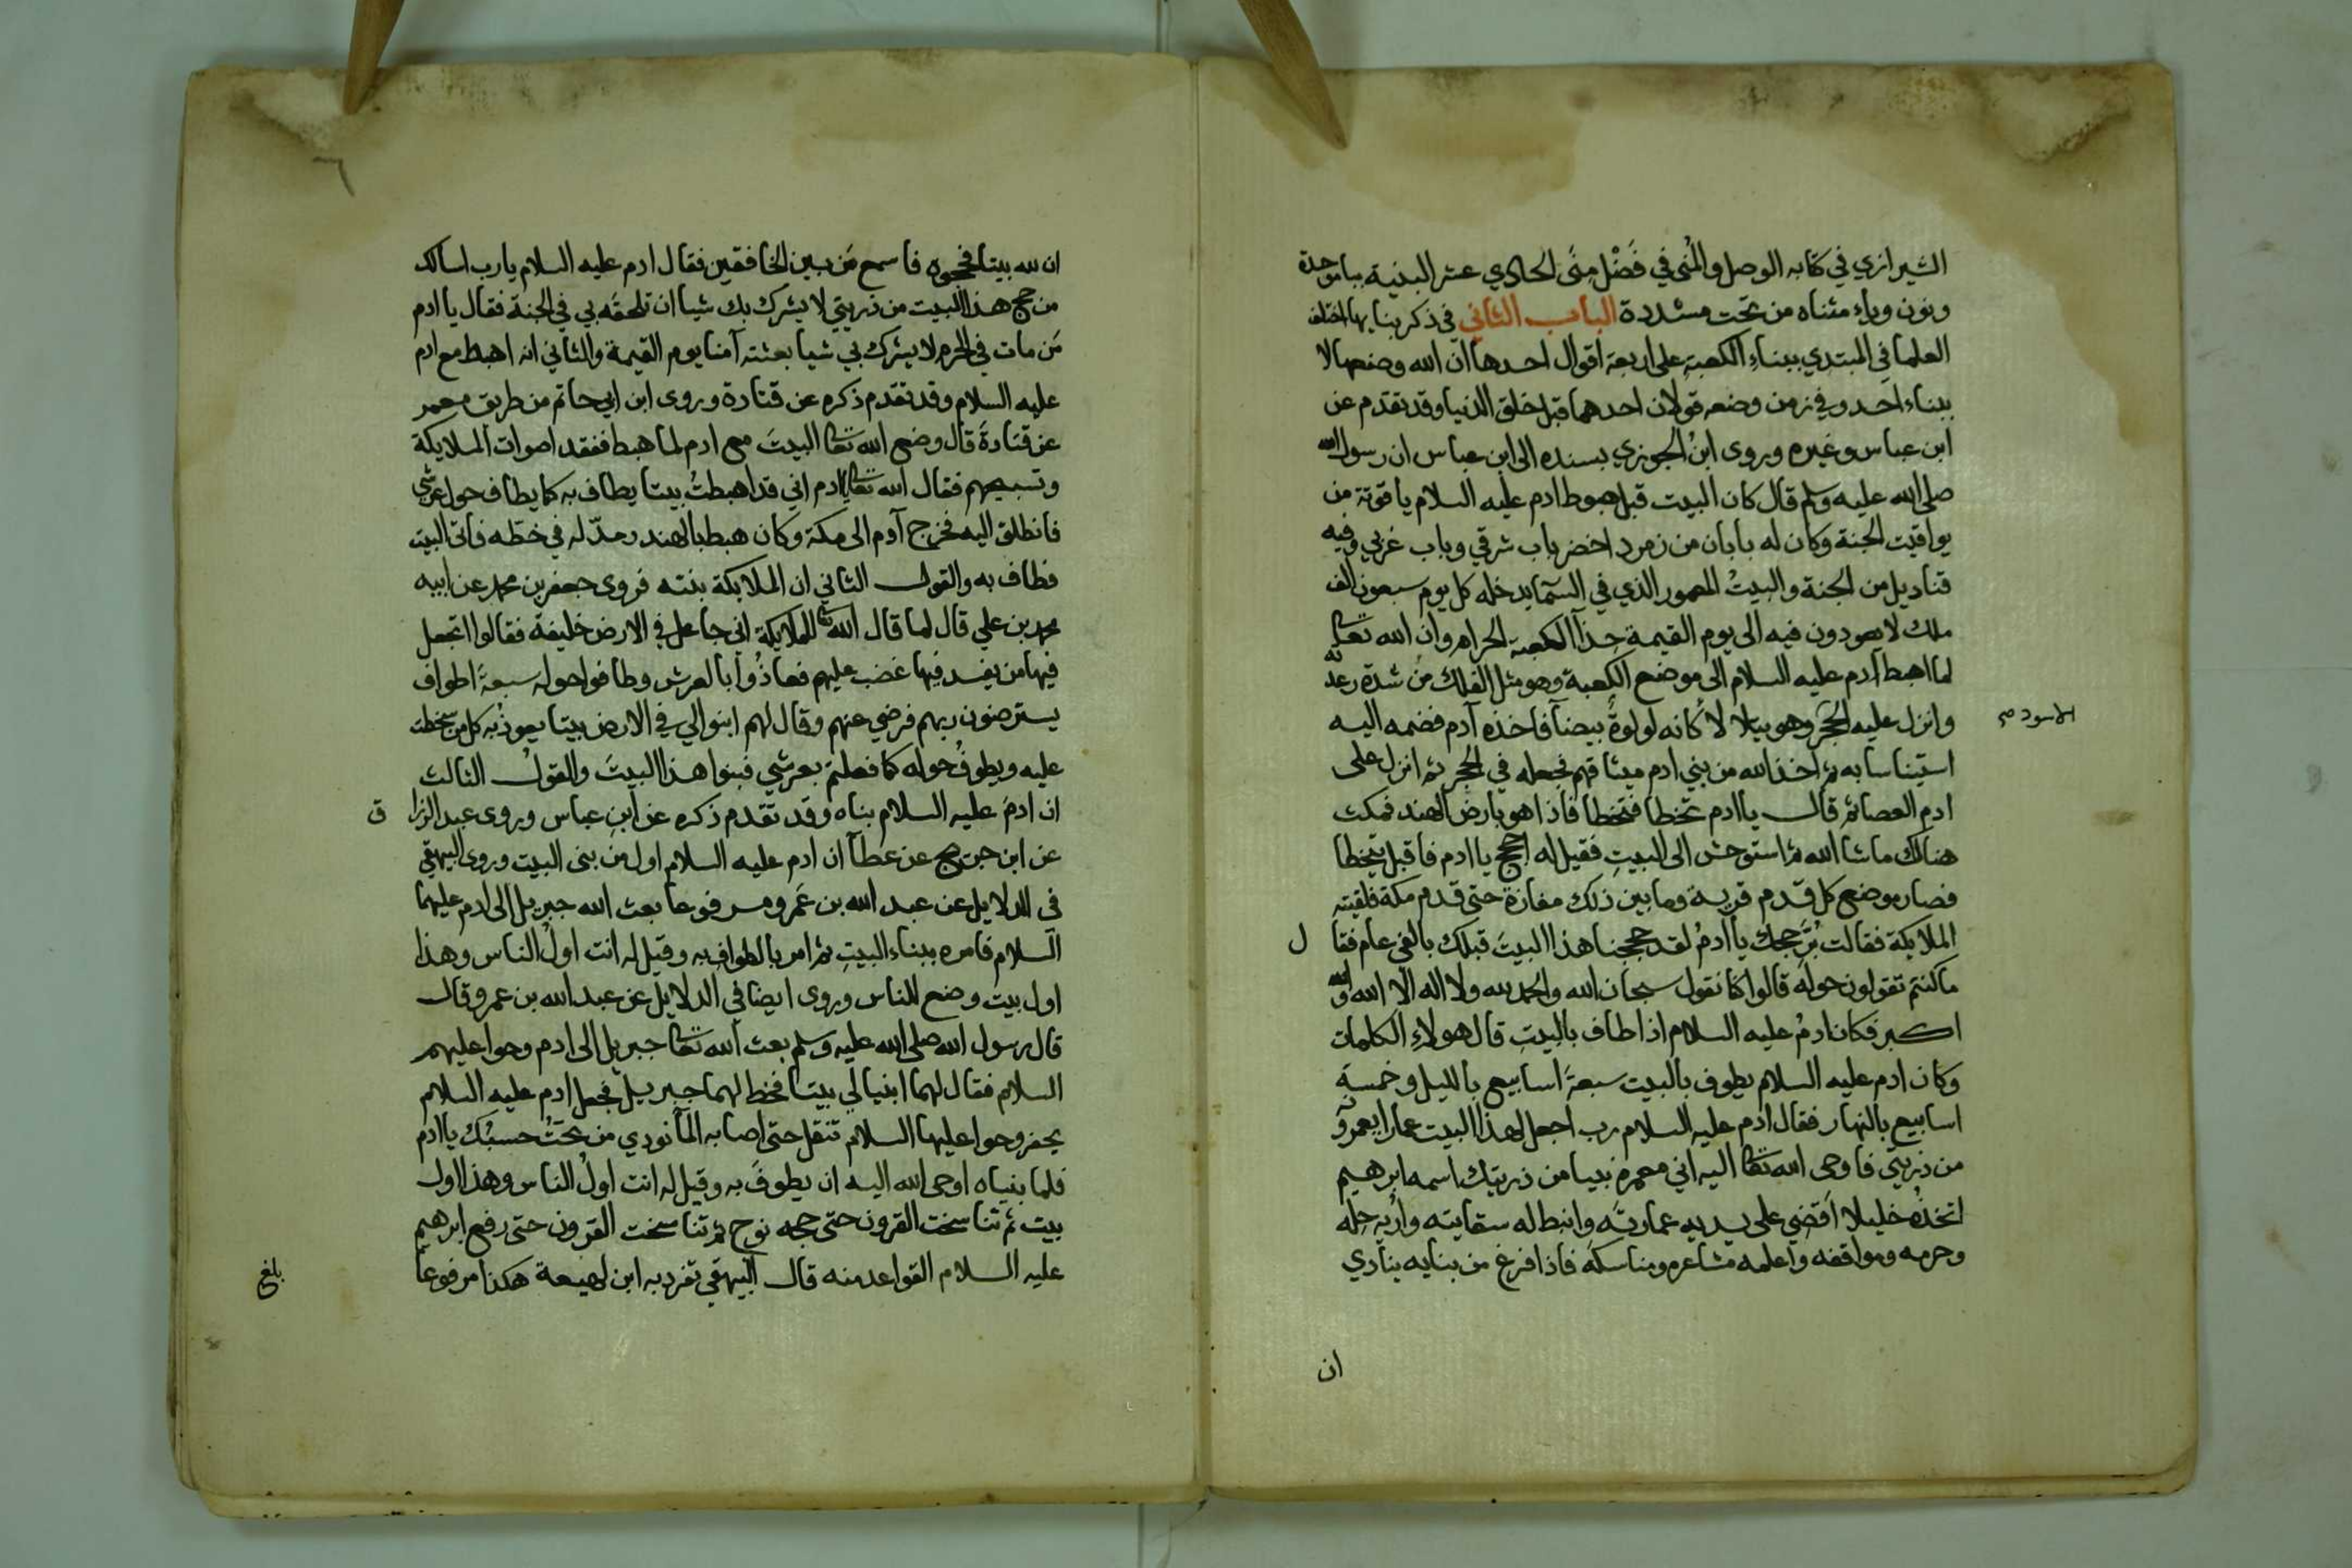 الشيرازي في كتابه الوصل والمُنى في فَضْل مِنَى الحادي عشر البنية بباموحدة
ونون وياء مثناه من تحت مشددة الباب الثاني في ذكر بنايها اختلف
العلما في المبتدي ببناء الكعبة على اربعة اقوال احدها ان الله وضعها لا
ببناء احد وفي زمن وضعه قولان احدهما قبل خلق الدنيا وقد تقدم عن
ابن عباس وغيره وروى ابن الجوزي بسنده الى ابن عباس ان رسول الله
صلى الله عليه وسلم قال كان البيت قبل هبوط ادم عليه السلام ياقوتة من
يواقيت الجنة وكان له بابان من زمرد اخضر باب شرقي وباب غربي وفيه
قناديل من الجنة والبيتُ المعمور الذي في السمآ يدخله كل يوم سبعون الف
ملك لا يعودون فيه الى يوم القيمة حذآ الكعبة الحرام وان الله تعالى
لما اهبط آدم عليه السلام الى موضع الكعبة وهو مثل الفلك من شدة رعدته
وانزل عليه الحَجَر وهو يتلا لأ كانه لولوةٌ بيضآ فاخذه آدم فضمه اليه
الاسود صح
استيناسا به ثم اخذ الله من بني ادم ميثاقهم فجعله في الحجر ثم انزل على
ادم العصا ثم قال يا ادم تخطا فتخطا فاذا هو بارض الهند فمكث
هنالك ماشا الله ثم استوحش الى البيت فقيل له احجج يا ادم فاقبل يتخطا
فصار موضع كل قدم قرية وما بين ذلك مفازة حتى قدم مكة فلقيته
الملايكة فقالت بُرَّ حجك يا ادمُ لقد حججنا هذا البيتَ قبلك بالفي عام فقا ل
ماكنتم تقولون حوله قالوا كنا نقول سبحان الله والحمد لله ولا اله الا الله والله
اكبر فكان ادمُ عليه السلام اذا طاف بالبيتِ قال هولاءِ الكلمات
وكان ادم عليه السلام يطوف بالبيت سبعةَ اسابيع بالليل وخمسةَ
اسابيع بالنهار فقال ادم عليه السلام رب اجعل لهذا البيت عمارا يعمرونه
من ذريتي فاوحى الله تعالى اليه اني معمره نبيا من ذريتك اسمه ابرهيم
اتخذُه خليلا اَقضي على يديه عمارتَه وانبط له سقايته واُرِيه حِله
وحرمه ومواقفه واعلمه مشاعره ومناسكه فاذا فرغ من بنايه ينادي
ان
٦
ان لله بيتا فحجوه فاسمع مَن بين الخافقين فقال ادم عليه السلام يارب اسالك
من حج هذا البيت من ذريتي لا يشرك بك شيا ان تلحقه بي في الجنة فقال يا ادم
مَن مات في الحرم لا يشرك بي شيا بعثته آمنا يوم القيمة والثاني انه اهبط مع ادم
عليه السلام وقد تقدم ذكره عن قتادة وروى ابن ابي حاتم من طريق معمر
عن قتادةَ قال وضع الله تعالى البيتَ مع ادم لما هبط ففقد اصوات الملايكة
وتسبيحهم فقال الله تعالى يا ادم اني قد اهبطتُ بيتا يطاف به كما يطاف حول عرشي
فانطلق اليه فخرج آدم الى مكة وكان هبط بالهند ومدّ له في خطه فاتى البيت
فطاف به والقول الثاني ان الملايكة بنته فروى جعفر بن محمد عن ابيه
محمد بن علي قال لما قال الله تعالى للملايكة اني جاعل في الارض خليفة فقالوا اتجعل
فيها من يفسد فيها غضب عليهم فعاذُوا بالعرش وطافوا حوله سبعةَ اطواف
يسترضون ربهم فرضي عنهم وقال لهم ابنوا لي في الارض بيتا يعوذُ به كل من سخطت
عليه ويطوفُ حوله كما فعلتم بعرشي فبنوا هذا البيتَ والقولُ الثالث
ان ادمَ عليه السلام بناه وقد تقدم ذكره عن ابن عباس وروى عبد الرزا ق
عن ابن جريج عن عطآ ان ادم عليه السلام اول من بنى البيت وروى البيهقي
في الدلايل عن عبد الله بن عَمرو مرفوعا بعث الله جبريل الى ادم عليهما
السلام فامره ببناء البيتِ ثم امر بالطواف به وقيل له انت اولُ الناس وهذا
اول بيت وضع للناس وروى ايضا في الدلايل عن عبد الله بن عمرو قال
قال رسول الله صلى الله عليه وسلم بعث الله تعالى جبريل الى ادم وحوا عليهم
السلام فقال لهما ابنيا لي بيتا فخط لهما جبريل فجعل ادم عليه السلام
يحفر وحوا عليها السلام تنقل حتى اصابه المآ نودي من تحتُ حسبُك يا ادم
فلما بنياه اوحى الله اليه ان يطوفَ به وقيل له انت اولُ الناس وهذا اول
بيت ثم تناسخت القرون حتى حجه نوح ثم تناسخت القرون حتى رفع ابرهيم
عليه السلام القواعد منه قال البيهقي تفرد به ابن لهيعة هكذا مرفوعا
بلغ